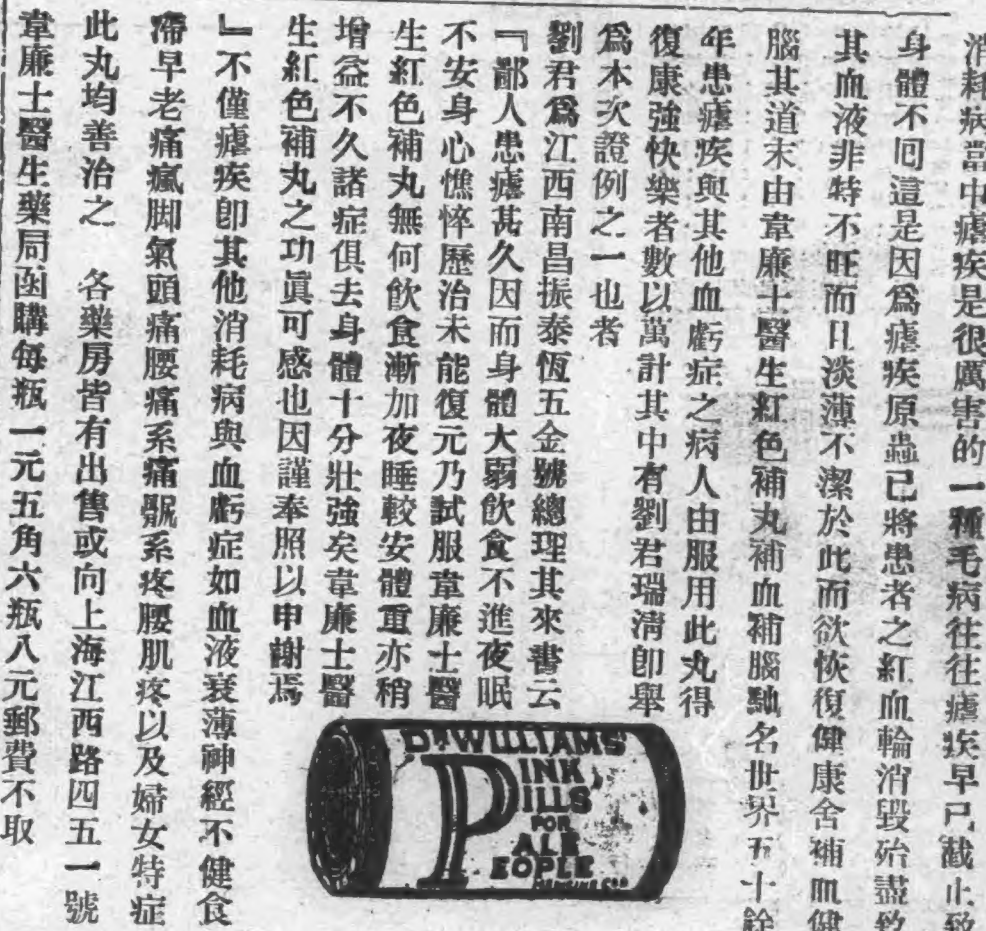 消耗病當中瘧疾是很厲害的一種毛病往往瘧疾早已截止致
身體不囘這是因爲瘧疾原蟲已將患者之紅血輪消毀殆盡致
其血液非特不旺而且淡薄不潔於此而欲恢復健康舍補血健
腦其道末由韋廉士醫生紅色補丸補血補腦馳名世界五十餘
年患瘧疾與其他血虧症之病人由服用此丸得
復康強快樂者數以萬計其中有劉君瑞清卽舉
爲本次證例之一也者
劉君爲江西南昌振泰恆五金號總理其來書云
『鄙人患瘧甚久因而身體大弱飲食不進夜眠
不安身心憔悴歷治未能復元乃試服韋廉士醫
生紅色補丸無何飲食漸加夜睡較安體重亦稍
增益不久諸症俱去身體十分壯強矣韋廉士醫
生紅色補丸之功眞可感也因謹奉照以申謝焉
』不僅瘧疾卽其他消耗病與血虧症如血液衰薄神經不健食
滯早老痛瘋脚氣頭痛腰痛系痛髋系疼腰肌疼以及婦女特症
此丸均善治之 各藥房皆有出售或向上海江西路四五一號
韋廉士醫生藥局函購每瓶一元五角六瓶八元郵費不取
DR WILLIAMS'
PINK
PILLS
FOR
PALE
PEOPLE